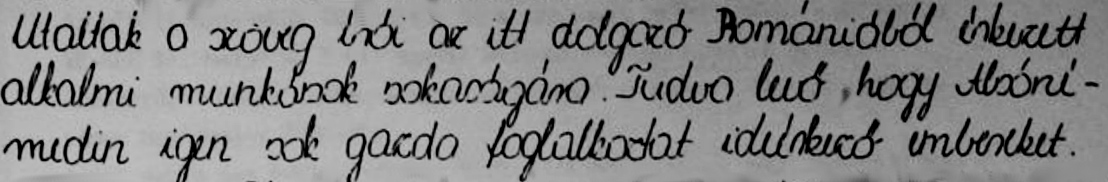 Utaltak a szöveg írói az itt dolgozó Romániából érkezett
alkalmi munkások sokaságára. Tudva levő, hogy Alsóné-
medin igen sok gazda foglalkoztat idénkező embereket.